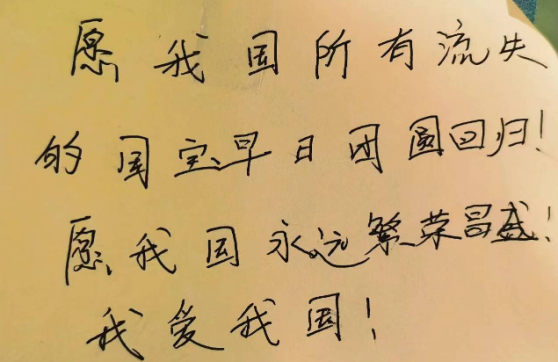 愿我国所有流失
的国宝早日团圆回归!
愿我国永远繁荣昌盛!
我爱我国!